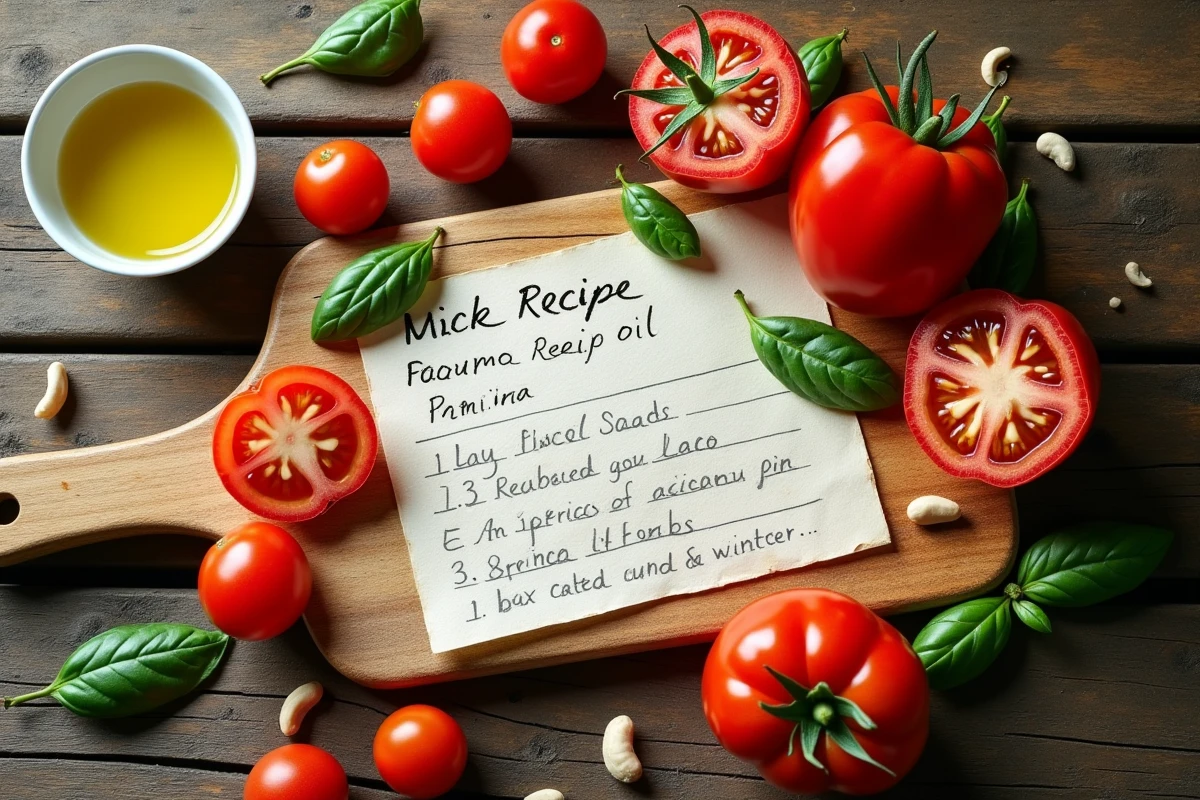 Mick Recipe
Faauma Reeip oil
Pnmiina
1 Lay Fiscol Saads
1.3 Reubared gou Laco
E An iperics of acicanu pin
3. Sprinca lif fombs
1. bax cated cund & wintcer...